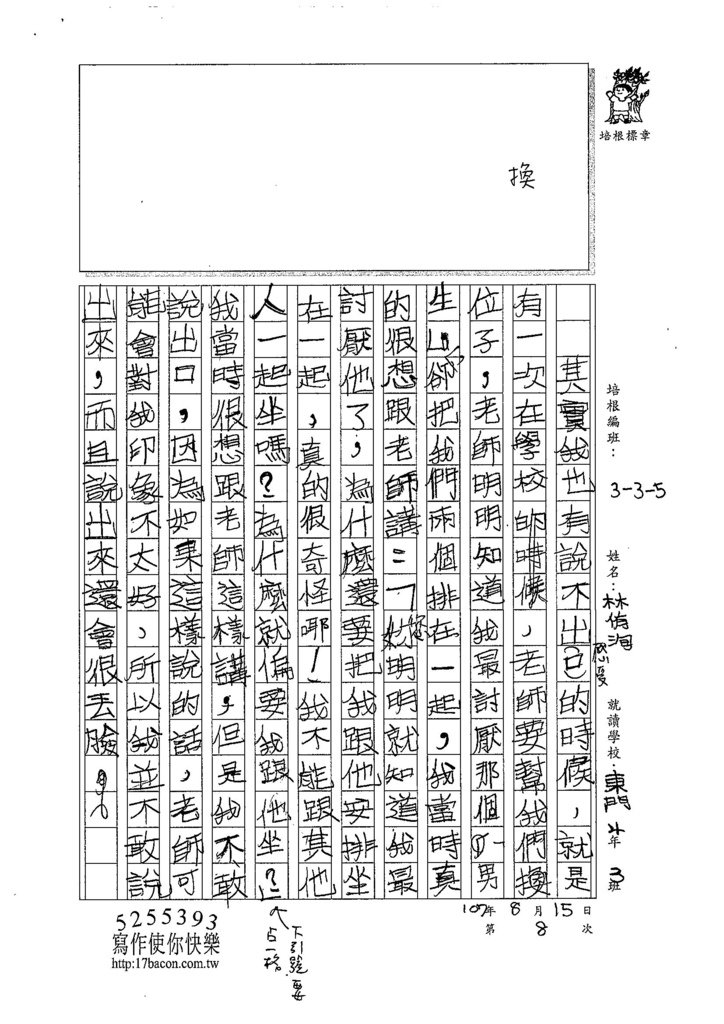 培根標章
換
培根編班：3-3-5
姓名：林侑洵
就讀學校：東門 4年3班
107年8月15日
第8次
其實我也有說不出口的時候，就是
感受
有一次在學校的時候，老師要幫我們換
位子，老師明明知道我最討厭那個男
生，卻把我們兩個排在一起，我當時真
的很想跟老師講：「妳明明就知道我最
您
討厭他了，為什麼還要把我跟他安排坐
在一起，真的很奇怪耶！我不能跟其他
人一起坐嗎？為什麼就偏要我跟他坐？」
我當時很想跟老師這樣講，但是我不敢
說出口，因為如果這樣說的話，老師可
能會對我印象不太好，所以我並不敢說
出來，而且說出來還會很丟臉。
下引號要
占一格
5255393
寫作使你快樂
http:17bacon.com.tw